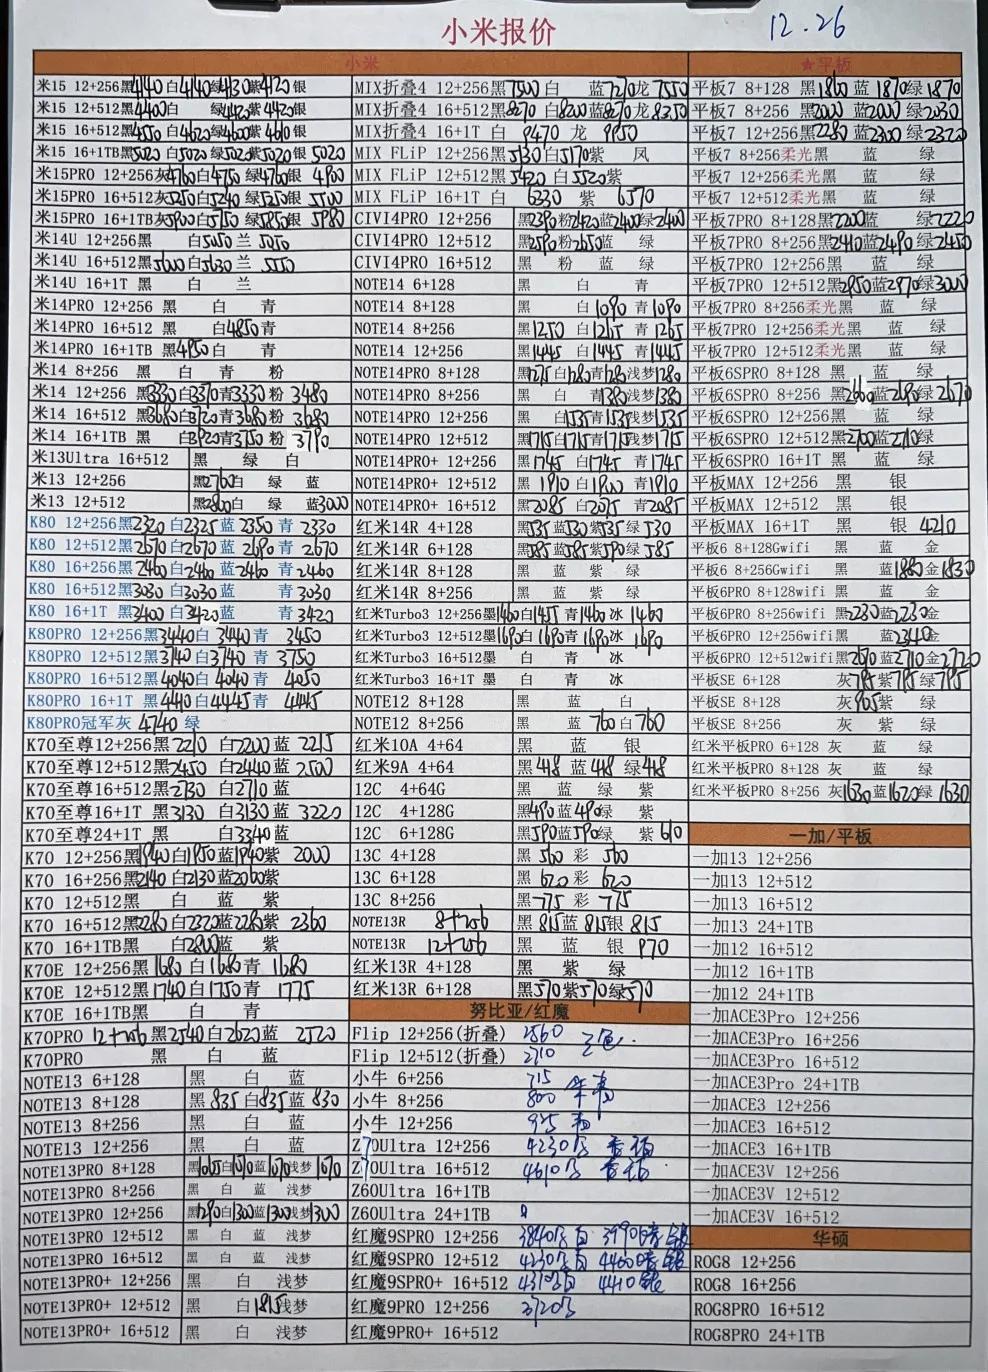 小米报价
12.26
小米
米15 12+256黑4140 白4140绿4130紫4120银
米15 12+512黑4400白 绿4420紫4420银
米15 16+512黑4550白4620绿4600紫4610银
米15 16+1TB黑5020白5020绿5020紫5020银 5020
米15PRO 12+256灰4760白4750绿4760银 4900
米15PRO 16+512灰5250白5240绿5250银 5500
米15PRO 16+1TB灰5900白5750绿5850银 5980
米14U 12+256黑 白5050兰 5050
米14U 16+512黑5600白5630兰 5550
米14U 16+1T 黑 白 兰
米14PRO 12+256 黑 白 青
米14PRO 16+512 黑 白4850青
米14PRO 16+1TB 黑4950白 青
米14 8+256 黑 白 青 粉
米14 12+256 黑3330白3370青3330粉 3480
米14 16+512 黑3680白3720青3680粉 3680
米14 16+1TB 黑 白3920青3750粉 3790
米13Ultra 16+512 黑 绿 白
米13 12+256 黑2760白 绿 蓝
米13 12+512 黑2800白 绿 蓝3000
K80 12+256黑2320白2325蓝 2350 青 2330
K80 12+512黑2670白2670蓝 2690 青 2670
K80 16+256黑2460白2460蓝2460 青2460
K80 16+512黑3030白3030蓝 青3030
K80 16+1T 黑3400白3420蓝 青3420
K80PRO 12+256黑3440白 3440青 3450
K80PRO 12+512黑3740白3740 青 3750
K80PRO 16+512黑4040白4040 青 4050
K80PRO 16+1T 黑4440白4445 青 4445
K80PRO冠军灰 4740 绿
K70至尊12+256黑2210 白2200蓝 2215
K70至尊12+512黑2450 白2440蓝 2500
K70至尊16+512黑2730 白2710蓝
K70至尊16+1T 黑3130 白3130蓝 3220
K70至尊24+1T 黑 白3340蓝
K70 12+256黑1940白1950蓝1940紫 2000
K70 16+256黑2140白2130蓝2060紫
K70 12+512黑 白 蓝 紫
K70 16+512黑2280白2320蓝2280紫 2360
K70 16+1TB黑 白2800蓝 紫
K70E 12+256黑 1680 白1680青 1680
K70E 12+512黑1740白1750青 1775
K70E 16+1TB黑 白 青
K70PRO 12+256黑2540白2620蓝 2520
K70PRO 黑 白 蓝
NOTE13 6+128 黑 白 蓝
NOTE13 8+128 黑 835白835蓝 830
NOTE13 8+256 黑 白 蓝
NOTE13 12+256 黑 白 蓝
NOTE13PRO 8+128 黑1065白1070蓝1070浅梦1070
NOTE13PRO 8+256 黑 白 蓝 浅梦
NOTE13PRO 12+256 黑1290白1300蓝1300浅梦1300
NOTE13PRO 12+512 黑 白 蓝 浅梦
NOTE13PRO 16+512 黑 白 蓝 浅梦
NOTE13PRO+ 12+256 黑 白 浅梦
NOTE13PRO+ 12+512 黑 白1815浅梦
NOTE13PRO+ 16+512 黑 白 浅梦
MIX折叠4 12+256黑7500白 蓝7270龙 7550
MIX折叠4 16+512黑8270 白8200蓝8270龙 8350
MIX折叠4 16+1T 白 9470 龙 9950
MIX FLiP 12+256黑5130白5170紫 凤
MIX FLiP 12+512黑5420 白5520紫
MIX FLiP 16+1T 白 6330 紫 6570
CIVI4PRO 12+256 黑2390粉2420蓝2400绿2400
CIVI4PRO 12+512 黑2590粉2650蓝 绿
CIVI4PRO 16+512 黑 粉 蓝 绿
NOTE14 6+128 黑 白 青
NOTE14 8+128 黑 白1090青1090
NOTE14 8+256 黑1250 白1265青1265
NOTE14 12+256 黑1445 白1445青1445
NOTE14PRO 8+128 黑1275白1280青1280浅梦1280
NOTE14PRO 8+256 黑 白 青1380浅梦1380
NOTE14PRO 12+256 黑 白1535青1535浅梦1535
NOTE14PRO 12+512 黑1715白1715青1715浅梦1715
NOTE14PRO+ 12+256 黑1745 白1745 青1745
NOTE14PRO+ 12+512 黑 1910 白1900青1910
NOTE14PRO+ 16+512 黑2085 白2075 青2085
红米14R 4+128 黑535蓝530紫535绿530
红米14R 6+128 黑585蓝585紫590绿585
红米14R 8+128 黑 蓝 紫 绿
红米14R 8+256 黑 蓝 紫 绿
红米Turbo3 12+256墨1460白1455青1460冰 1460
红米Turbo3 12+512墨1690白1690青1690冰 1690
红米Turbo3 16+512墨 白 青 冰
红米Turbo3 16+1T 墨 白 青 冰
NOTE12 8+128 黑 蓝 白
NOTE12 8+256 黑 蓝 760白760
红米10A 4+64 黑 蓝 银
红米9A 4+64 黑418 蓝418绿418
12C 4+64G 黑 蓝 绿 紫
12C 4+128G 黑490蓝490绿 紫
12C 6+128G 黑590蓝590绿 紫610
13C 4+128 黑 560 彩 560
13C 6+128 黑 620 彩 620
13C 8+256 黑 775 彩 775
NOTE13R 8+256 黑815蓝 815银 815
NOTE13R 12+256 黑 蓝 银 970
红米13R 4+128 黑 紫 绿
红米13R 6+128 黑570紫570绿570
努比亚/红魔
Flip 12+256(折叠) 2560
Flip 12+512(折叠) 2710 三色
小牛 6+256 715
小牛 8+256 800
小牛 12+256 925
Z70Ultra 12+256 4230
Z70Ultra 16+512 4610
Z60Ultra 16+1TB
Z60Ultra 24+1TB
红魔9SPRO 12+256 3840 3990
红魔9SPRO 12+512 4230 4400
红魔9SPRO+ 16+512 4310 4410银
红魔9PRO 12+256 3720
红魔9PRO+ 16+512
★平板
平板7 8+128 黑1860 蓝 1870绿1870
平板7 8+256 黑2000 蓝2000 绿2030
平板7 12+256 黑2280蓝2300 绿2320
平板7 8+256柔光黑 蓝 绿
平板7 12+256柔光黑 蓝 绿
平板7 12+512柔光黑 蓝 绿
平板7PRO 8+128黑2200蓝 绿2220
平板7PRO 8+256黑2410蓝2490绿2450
平板7PRO 12+256黑 蓝 绿
平板7PRO 12+512黑2950蓝2970绿3000
平板7PRO 8+256柔光黑 蓝 绿
平板7PRO 12+256柔光黑 蓝 绿
平板7PRO 12+512柔光黑 蓝 绿
平板6SPRO 8+128 黑 蓝 绿
平板6SPRO 8+256 黑2660蓝2690绿2670
平板6SPRO 12+256黑 蓝 绿
平板6SPRO 12+512黑2700蓝2710绿
平板6SPRO 16+1T 黑 蓝 绿
平板MAX 12+256 黑 银
平板MAX 12+512 黑 银
平板MAX 16+1T 黑 银 4210
平板6 8+128Gwifi 黑 蓝 金
平板6 8+256Gwifi 黑 蓝1880金1830
平板6PRO 8+128wifi 黑 蓝 金
平板6PRO 8+256wifi 黑2230蓝2230金
平板6PRO 12+256wifi黑 蓝2340金
平板6PRO 12+512wifi黑2670蓝2710金2720
平板SE 6+128 灰785紫785绿785
平板SE 8+128 灰905紫 绿
平板SE 8+256 灰 紫 绿
红米平板PRO 6+128 灰 蓝 绿
红米平板PRO 8+128 灰 蓝 绿
红米平板PRO 8+256 灰1630蓝1620绿1630
一加/平板
一加13 12+256
一加13 12+512
一加13 16+512
一加13 24+1TB
一加12 16+512
一加12 16+1TB
一加12 24+1TB
一加ACE3Pro 12+256
一加ACE3Pro 16+256
一加ACE3Pro 16+512
一加ACE3Pro 24+1TB
一加ACE3 12+256
一加ACE3 16+512
一加ACE3 16+1TB
一加ACE3V 12+256
一加ACE3V 12+512
一加ACE3V 16+512
华硕
ROG8 12+256
ROG8 16+256
ROG8PRO 16+512
ROG8PRO 24+1TB